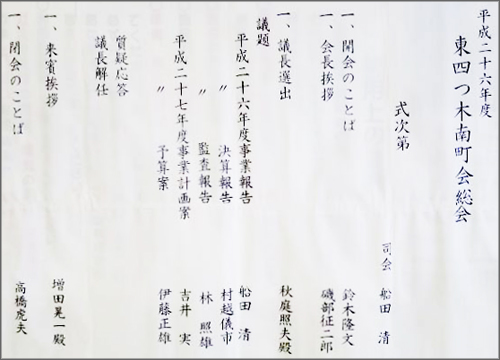 平成二十六年度
東四つ木南町会総会
式次第
司会 船田 清
一、開会のことば 鈴木隆文
一、会長挨拶 磯部征二郎
一、議長選出 秋庭照夫殿
議題
平成二十六年度事業報告 船田 清
〃 決算報告 村越儀市
〃 監査報告 林 照雄
平成二十七年度事業計画案 吉井 実
〃 予算案 伊藤正雄
質疑応答
議長解任
一、来賓挨拶 増田晃一殿
一、閉会のことば 高橋虎夫